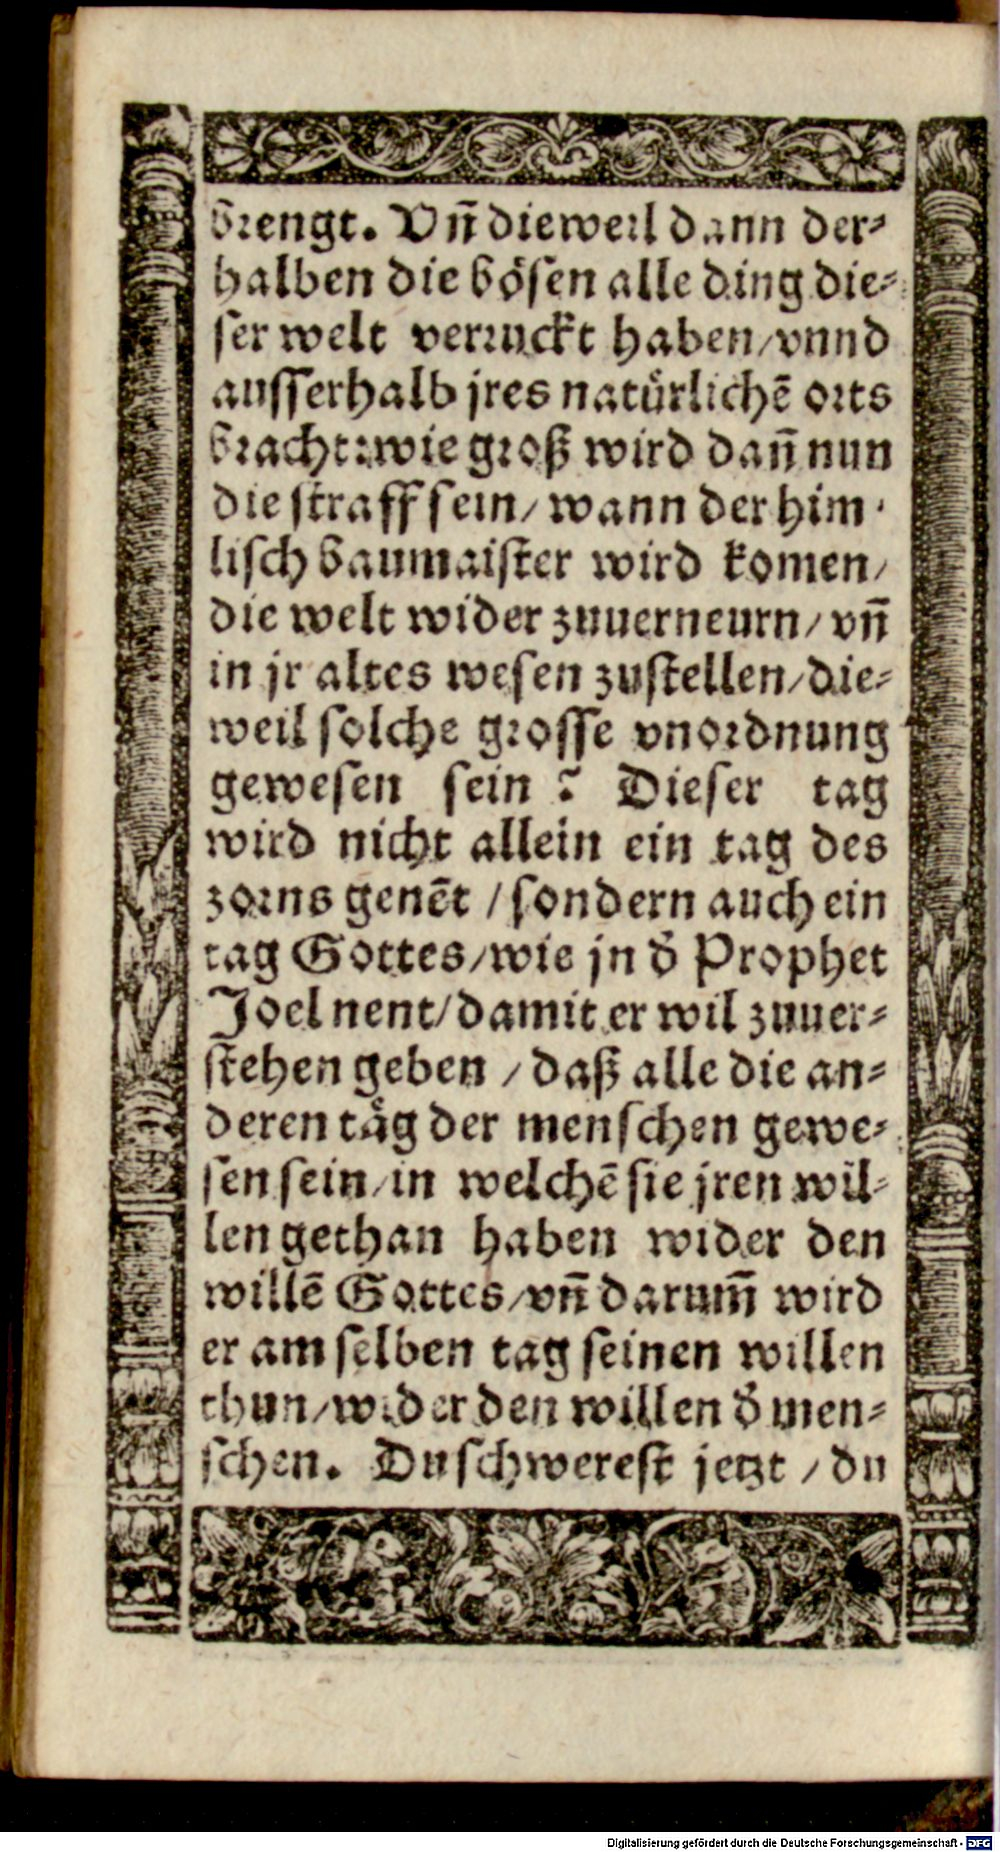 brengt. Vñ dieweil dann der⸗
halben die bösen alle ding die⸗
ser welt verruckt haben/vnnd
ausserhalb jres natürlichē orts
bracht:wie groß wird dañ nun
die straff sein/ wann der him⸗
lisch baumaister wird komen/
die welt wider zuuerneurn/ vñ
in jr altes wesen zustellen/die⸗
weil solche grosse vnordnung
gewesen sein ? Dieser tag
wird nicht allein ein tag des
zorns genēt / sondern auch ein
tag Gottes/wie jn d̄ Prophet
Joel nent/damit er wil zuuer⸗
stehen geben / daß alle die an⸗
deren täg der menschen gewe⸗
sen sein/in welchē sie jren wil⸗
len gethan haben wider den
willē Gottes/vñ darum̄ wird
er am selben tag seinen willen
thun/wider den willen d̄ men⸗
schen. Du schwerest jetzt / du
Digitalisierung gefördert durch die Deutsche Forschungsgemeinschaft - DFG